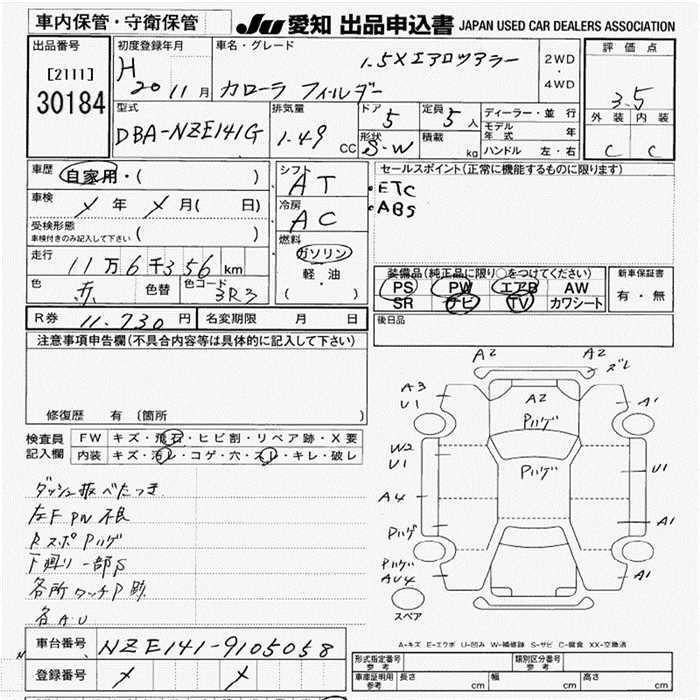 車内保管・守衛保管
JU 愛知 出品申込書 JAPAN USED CAR DEALERS ASSOCIATION
出品番号
[2111]
30184
初度登録年月
H 20 11 月
車名・グレード
1.5Xエアロツアラー
カローラ フィルダー
2WD・4WD
評価点
3.5
外装 内装
C C
型式
DBA-NZE141G
排気量
1.49 CC
ドア 5
形状 S.W
定員 5 人
積載 kg
ディーラー・並行
モデル年式 年
ハンドル 左・右
車歴 自家用・( )
車検 メ 年 メ 月( 日)
受検形態
車検付きのみ記入して下さい ( )
走行 11万6千356 km
色 赤 色替 色コード 3R3
シフト
AT
冷房
AC
燃料
ガソリン
軽・油
( )
セールスポイント(正常に機能するものに限ります)
・ETC
・ABS
装備品(純正品に限り○をつけてください)
PS PW エアB AW
SR ナビ TV カワシート
新車保証書
有・無
R券 11.730 円 名変期限 月 日
後日品
注意事項申告欄(不具合内容等は具体的に記入して下さい)
修復歴 有 (箇所 )
検査員記入欄
FW キズ・飛石・ヒビ割・リペア跡・X要
内装 キズ・汚レ・コゲ・穴・スレ・キレ・破レ
ダッシュ板べたつき
左F PW 不良
Rスポ Pハゲ
下廻り一部S
各所タッチP跡
各A.U
A2 A2
ズレ
A3
U1
A2
Pハゲ
A1
W2
U1
Pハゲ
U1
A4
A1
Pハゲ
Pハゲ
AU4
A1
スペア
A-キズ E-エクボ U-凹み W-補修跡 S-サビ C-腐食 XX-交換済
車台番号 NZE141-9105058
登録番号 メ メ
形式指定番号 参考 類別区分番号 参考
車庫証明用 参考 長さ cm 幅 cm 高さ cm